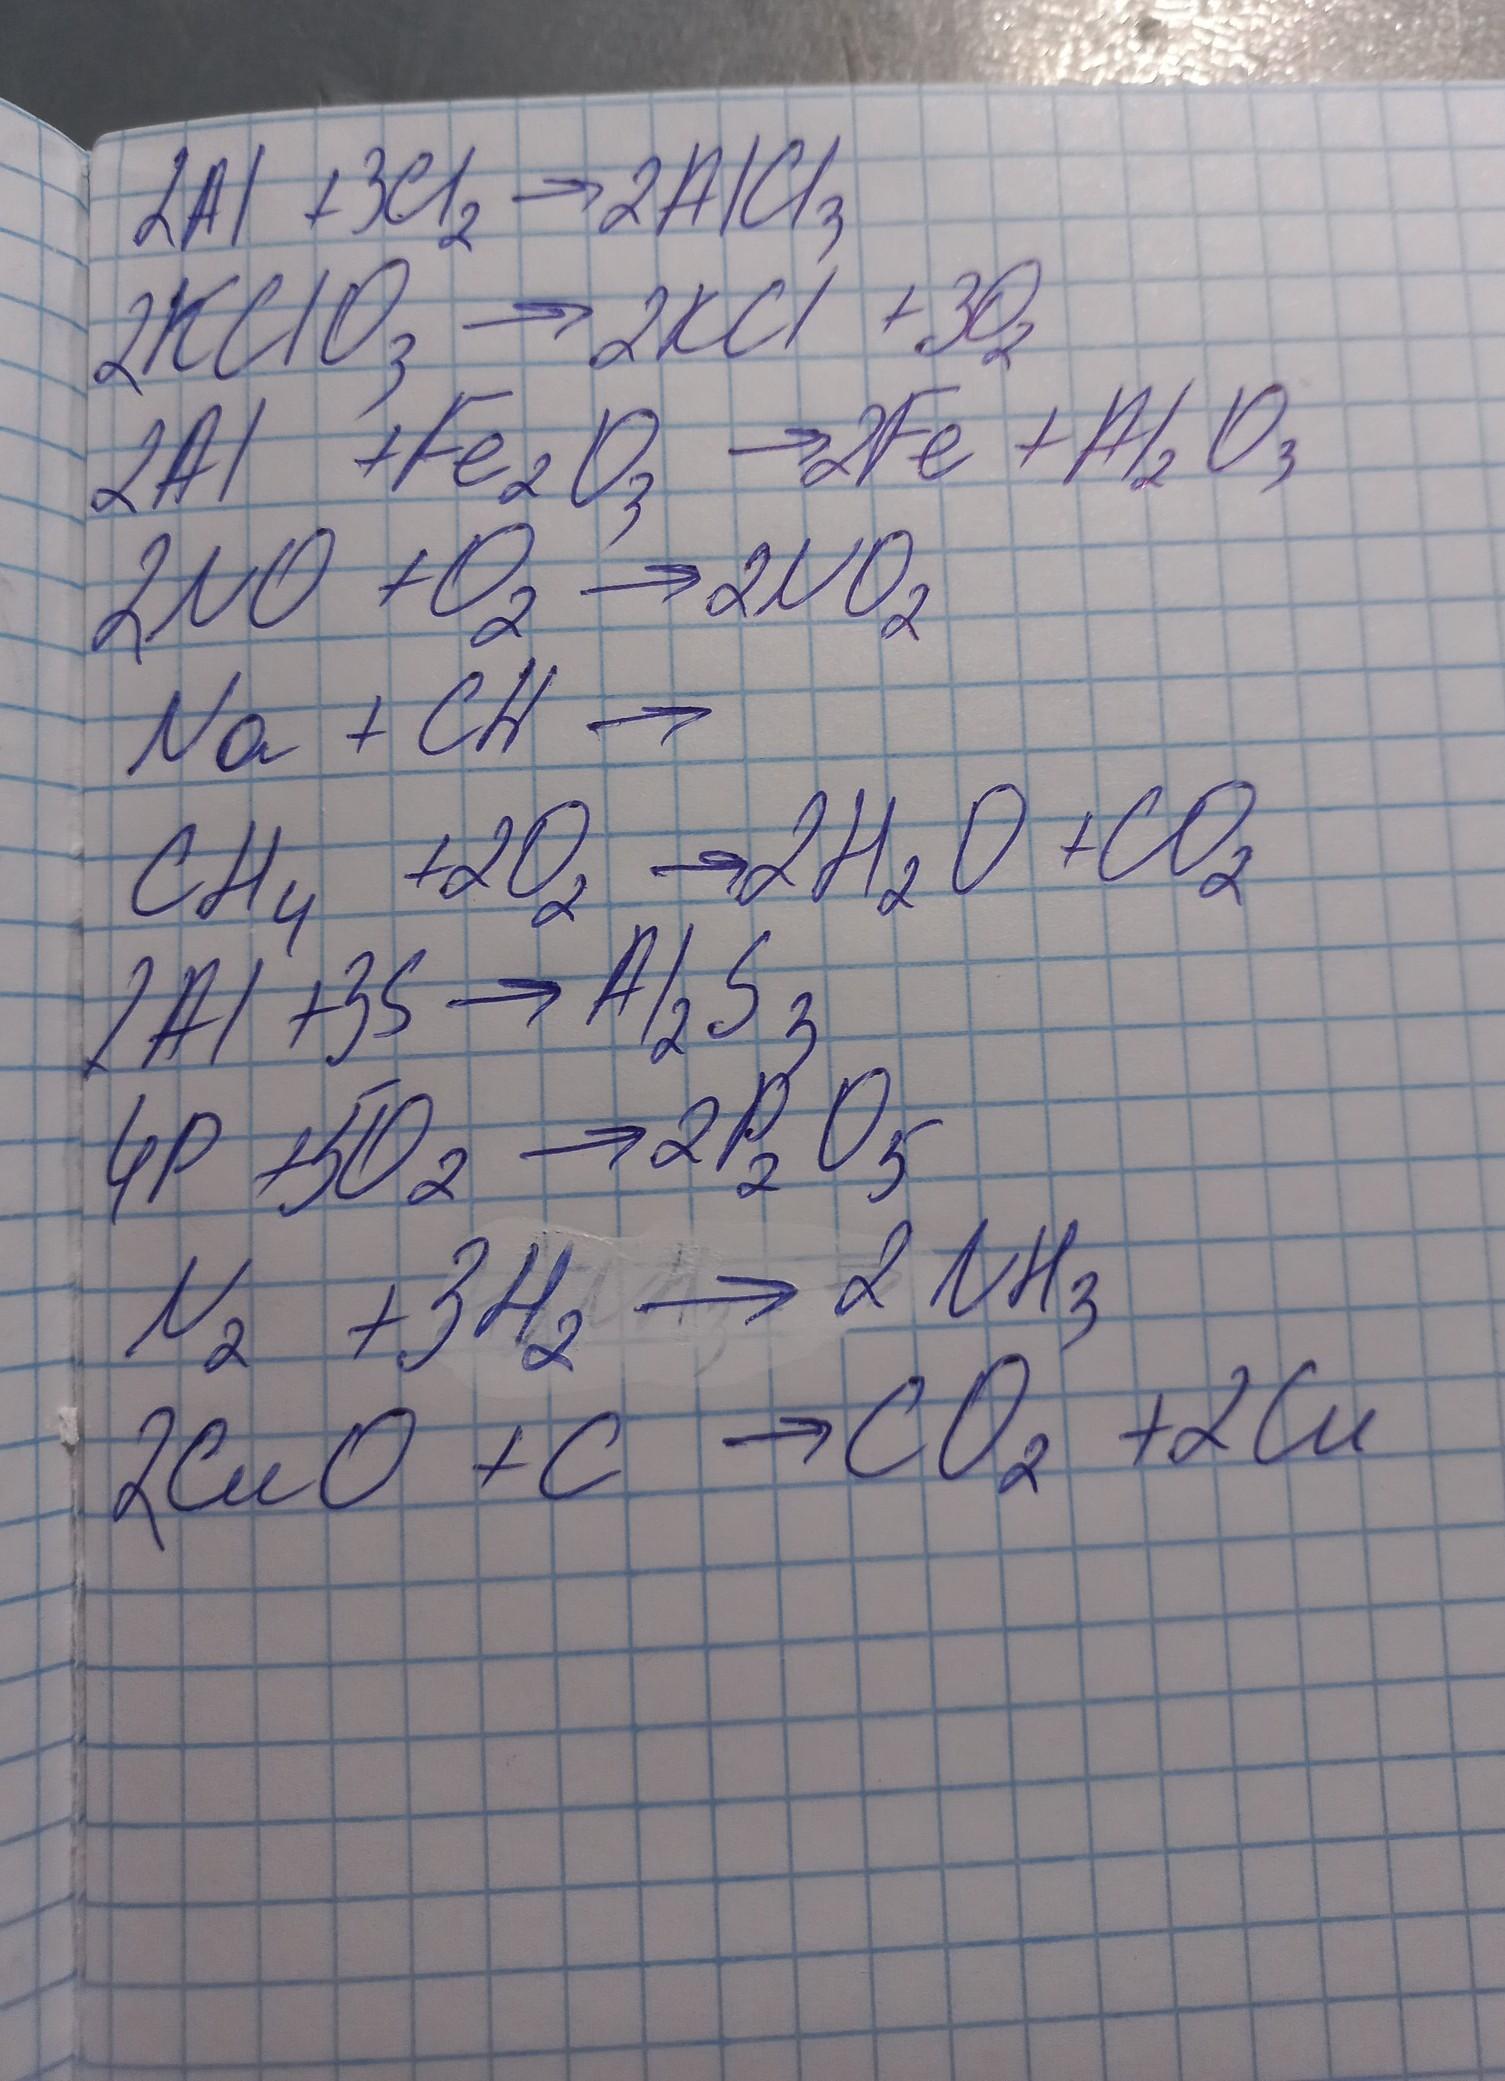 2Al + 3Cl₂ → 2AlCl₃
2KClO₃ → 2KCl + 3O₂
2Al + Fe₂O₃ → 2Fe + Al₂O₃
2NO + O₂ → 2NO₂
Na + CH →
CH₄ + 2O₂ → 2H₂O + CO₂
2Al + 3S → Al₂S₃
4P + 5O₂ → 2P₂O₅
N₂ + 3H₂ → 2NH₃
2CuO + C → CO₂ + 2Cu